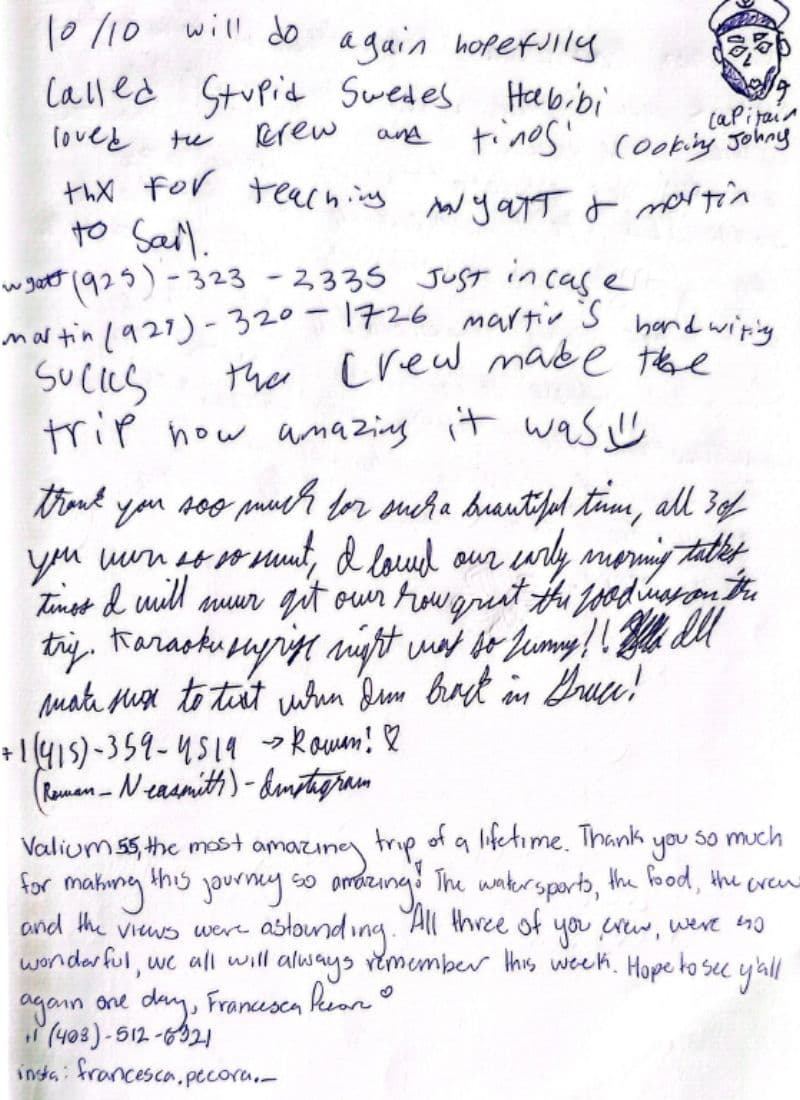 10/10 will do again hopefully
Called Stupid Swedes Habibi
Capitain
Johny
loved the crew and tinos' cooking
thx for teaching wyatt & martin
to Sail.
wyatt (925)-323-2335 Just incase
martin (925)-320-1726 martin's handwiting
sucks the Crew made the
trip how amazing it was
thank you soo much for such a beautiful time, all 3 of
you were so so sweet, I loved our early morning talks
tinos I will never get over how great the food was on the
trip. Karaoke surprise night was so funny!! Ill
make sure to text when Im back in Greece!
+1(415)-359-4519 → Rowan! ♡
(Rowan_Neasmith)-Instagram
Valium 55, the most amazing trip of a lifetime. Thank you so much
for making this journey so amazing! The watersports, the food, the crew
and the views were astounding. All three of you crew, were so
wonderful, we all will always remember this week. Hope to see y'all
again one day, Francesca Pecora ♡
+1 (408)-512-6321
insta: francesca.pecora._